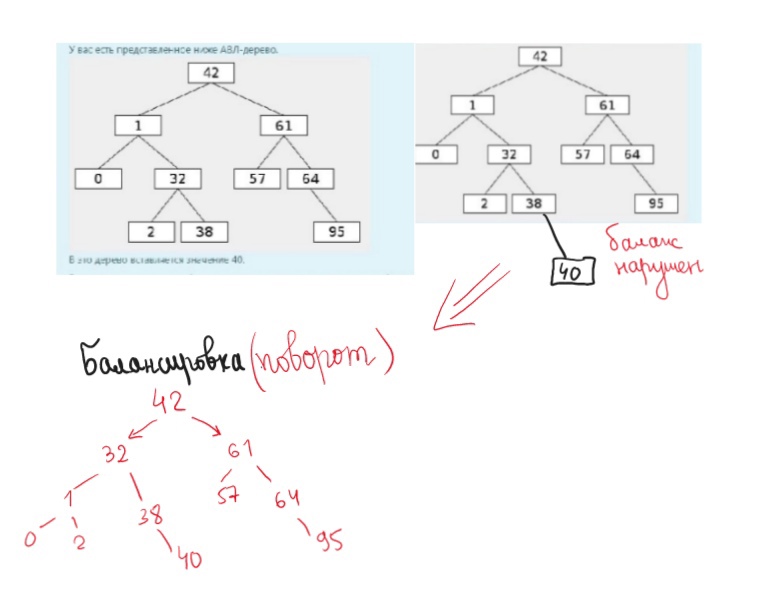 У вас есть представленное ниже АВЛ-дерево.
42
1 61
0 32 57 64
2 38 95
В это дерево вставляется значение 40.
42
1 61
0 32 57 64
2 38 95
40
баланс
нарушен
Балансировка (поворот)
42
32 61
1 38 57 64
0 2 40 95